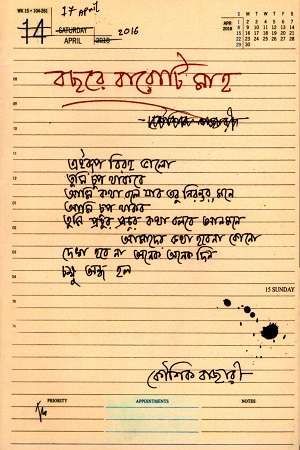 17 April
WK 15 • 104-261
14 SATURDAY 2016
APRIL 2018
S M T W T F S
APR 2018
1 2 3 4 5 6 7
8 9 10 11 12 13 14
15 16 17 18 19 20 21
22 23 24 25 26 27 28
29 30
বছরে বারোটি মাস
এইরূপ বিরহ ভালো
তুমি চুপ থাকবে
আমি কথা বলে যাব তবু নিরন্তর, মনে
আমি চুপ থাকব
তুমি প্রচুর প্রচুর কথা বলবে আনমনে
আমাদের কথা হবেনা কোনো
দেখা হবে না অনেক অনেক দিন
চক্ষু অন্ধ হল
15 SUNDAY
কৌশিক বাজারী
PRIORITY APPOINTMENTS NOTES